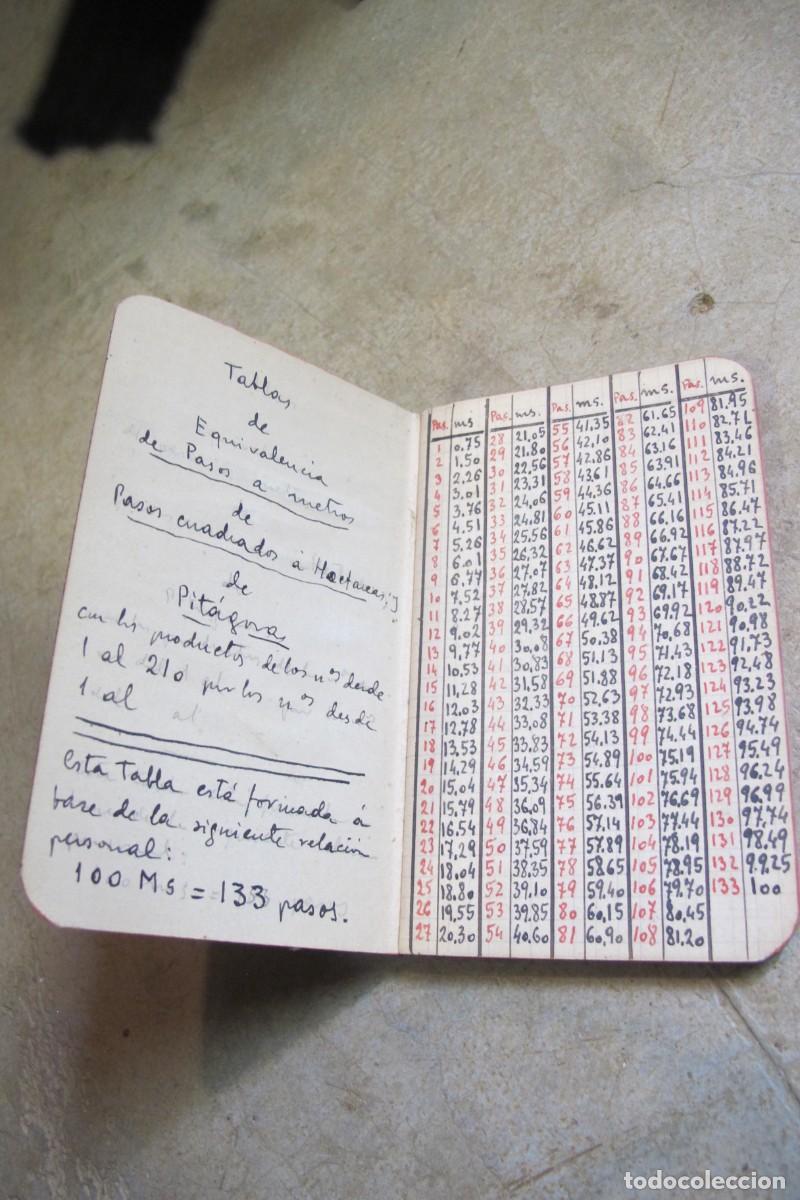 Tablas
de
Equivalencia
de Pasos a metros
de
Pasos cuadrados á Hectareas; y
de
Pitágoras
con los productos de los nos desde
1 al 210 por los nos desde
1 al
Esta Tabla está formada á
base de la siguiente relación
personal:
100 Ms = 133 pasos.
Pas. ms Pas. ms. Pas. ms. Pas. ms. Pas. ms.
1 0.75 28 21.05 55 41.35 82 61.65 109 81.95
2 1.50 29 21.80 56 42.10 83 62.41 110 82.71
3 2.26 30 22.56 57 42.86 84 63.16 111 83.46
4 3.01 31 23.31 58 43.61 85 63.91 112 84.21
5 3.76 32 24.06 59 44.36 86 64.66 113 84.96
6 4.51 33 24.81 60 45.11 87 65.41 114 85.71
7 5.26 34 25.56 61 45.86 88 66.16 115 86.47
8 6.01 35 26.32 62 46.62 89 66.92 116 87.22
9 6.77 36 27.07 63 47.37 90 67.67 117 87.97
10 7.52 37 27.82 64 48.12 91 68.42 118 88.72
11 8.27 38 28.57 65 48.87 92 69.17 119 89.47
12 9.02 39 29.32 66 49.62 93 69.92 120 90.22
13 9.77 40 30.08 67 50.38 94 70.68 121 90.98
14 10.53 41 30.83 68 51.13 95 71.43 122 91.73
15 11.28 42 31.58 69 51.88 96 72.18 123 92.48
16 12.03 43 32.33 70 52.63 97 72.93 124 93.23
17 12.78 44 33.08 71 53.38 98 73.68 125 93.98
18 13.53 45 33.83 72 54.13 99 74.44 126 94.74
19 14.29 46 34.59 73 54.89 100 75.19 127 95.49
20 15.04 47 35.34 74 55.64 101 75.94 128 96.24
21 15.79 48 36.09 75 56.39 102 76.69 129 96.99
22 16.54 49 36.84 76 57.14 103 77.44 130 97.74
23 17.29 50 37.59 77 57.89 104 78.19 131 98.49
24 18.04 51 38.35 78 58.65 105 78.95 132 99.25
25 18.80 52 39.10 79 59.40 106 79.70 133 100
26 19.55 53 39.85 80 60.15 107 80.45
27 20.30 54 40.60 81 60.90 108 81.20
todocoleccion